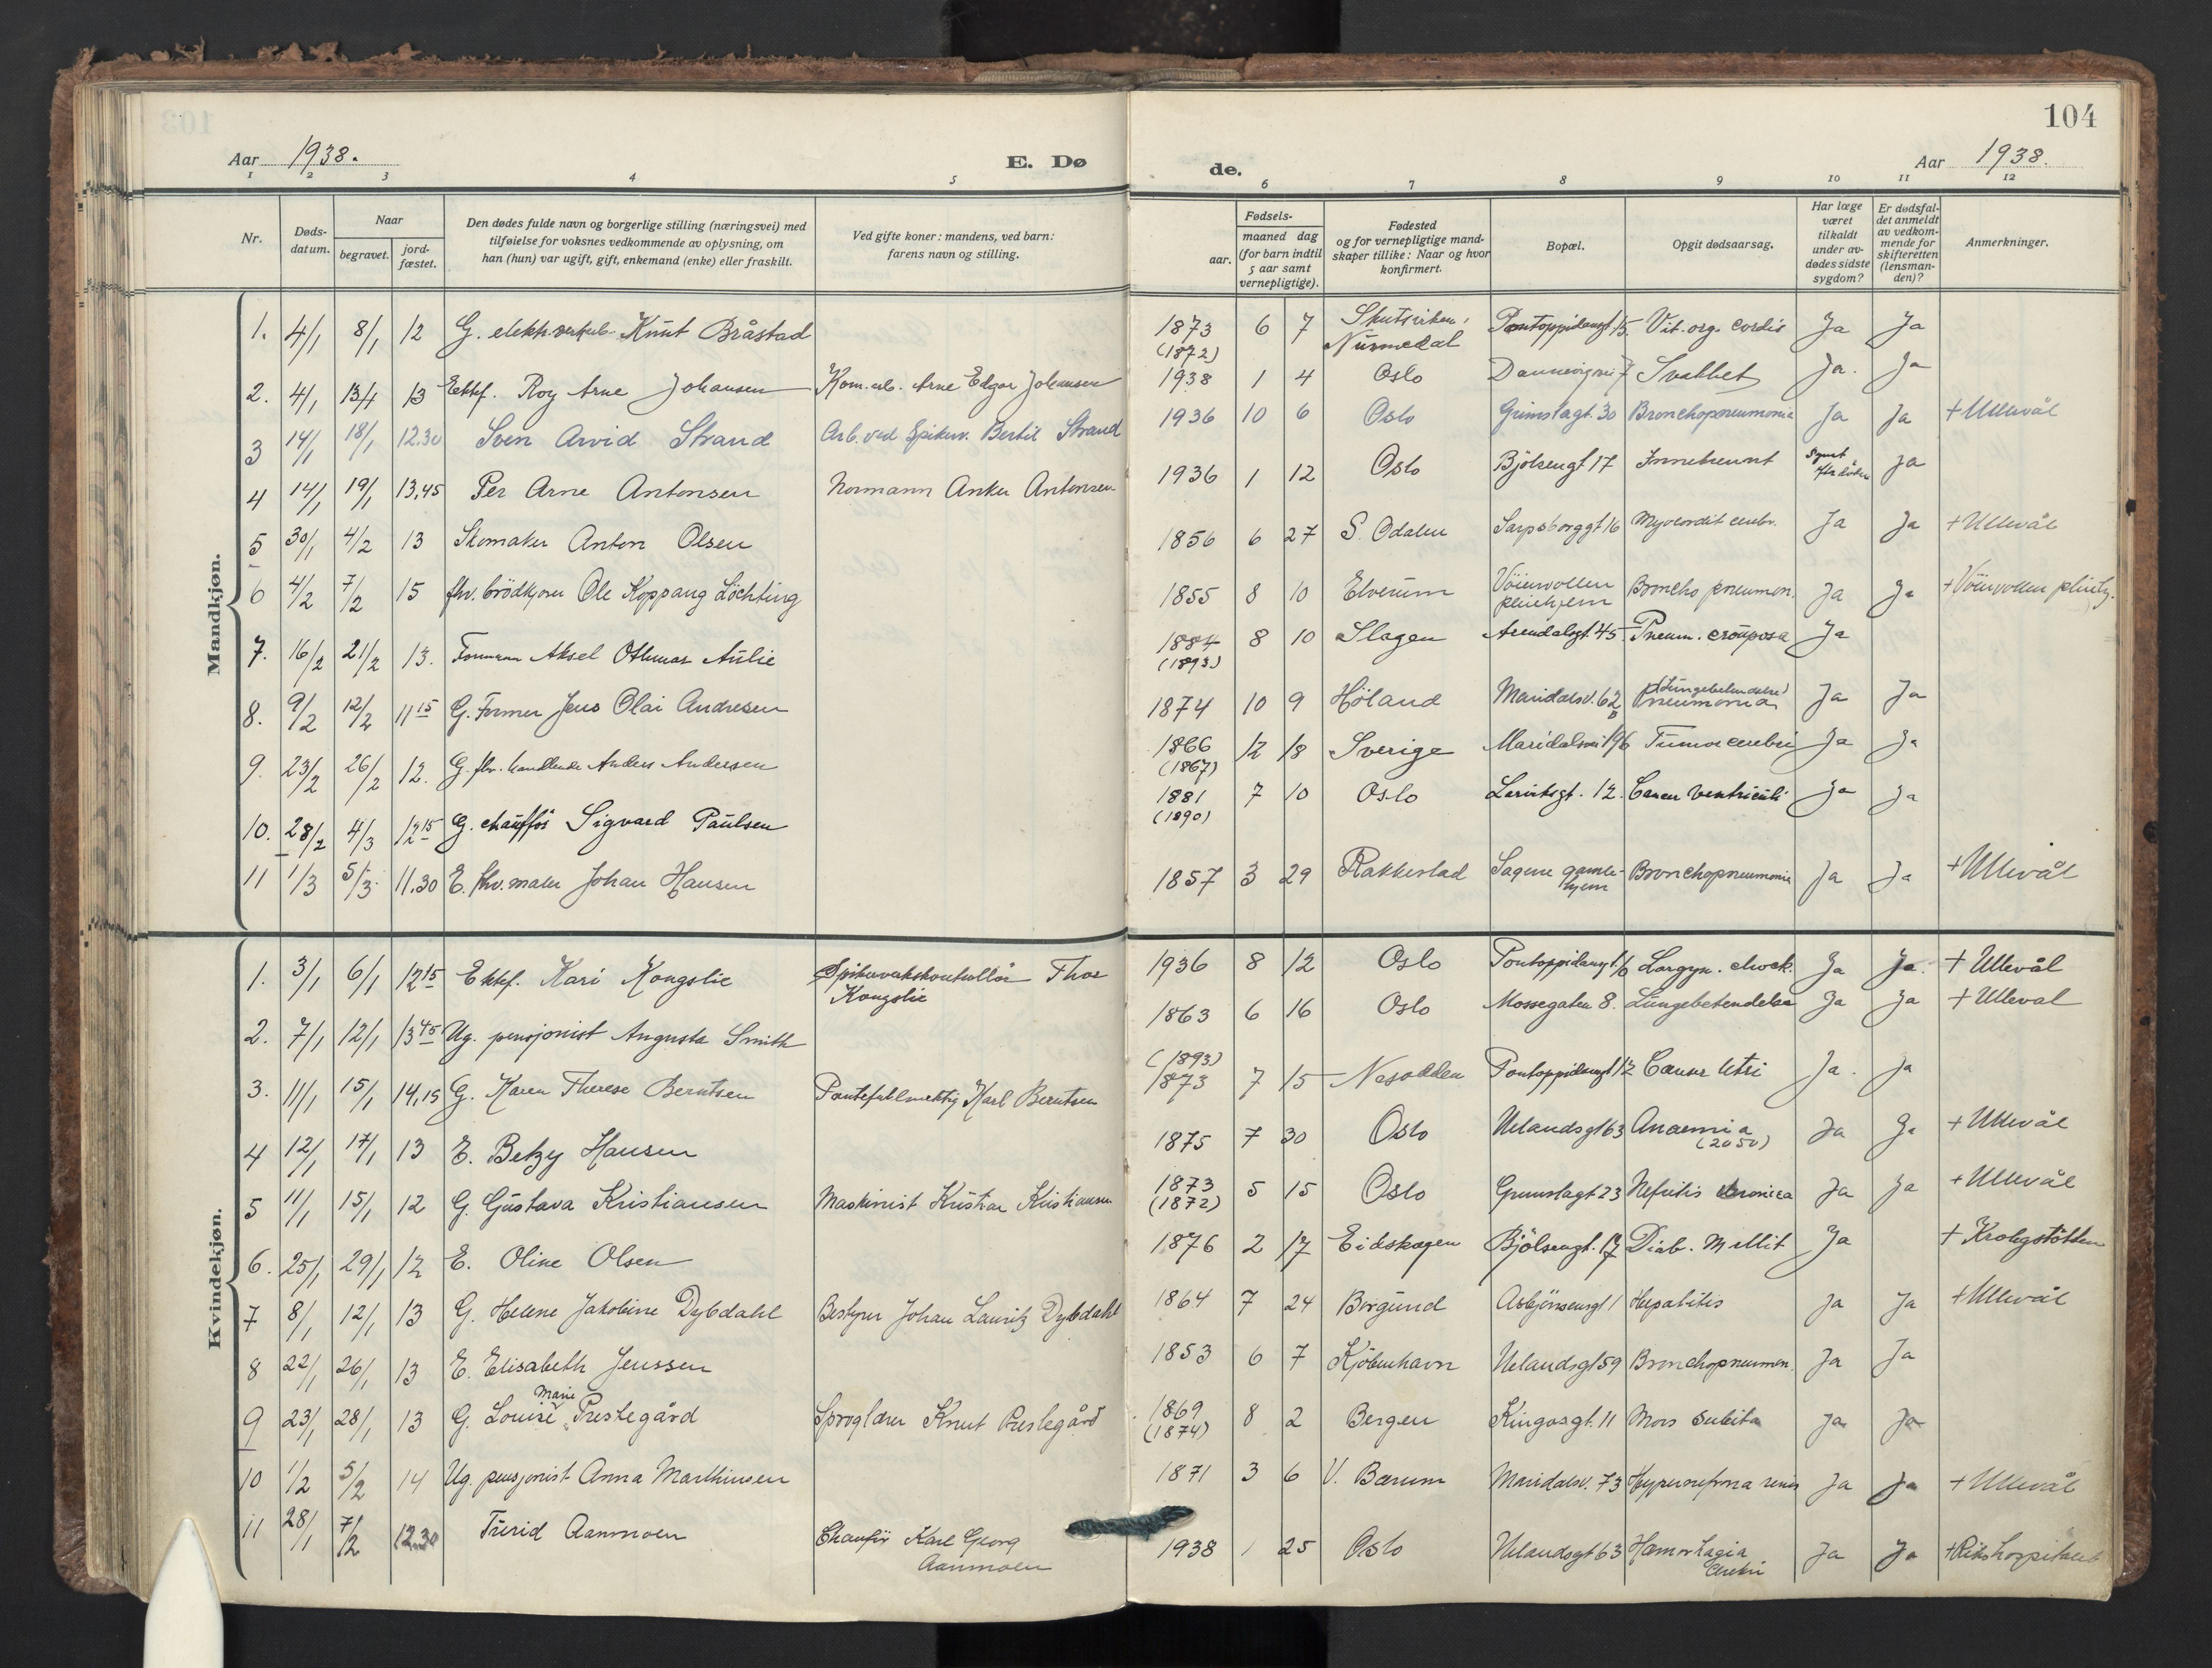 104
Aar 1938. E. Dø de. Aar 1938.
1 2 3 4 5 6 7 8 9 10 11 12
Nr. Døds-datum. Naar begravet. jord-fæstet. Den dødes fulde navn og borgerlige stilling (næringsvei) med tilføielse for voksnes vedkommende av oplysning, om han (hun) var ugift, gift, enkemand (enke) eller fraskilt. Ved gifte koner: mandens, ved barn: farens navn og stilling. Fødsels- aar. maaned dag (for barn indtil 5 aar samt vernepligtige). Fødested og for vernepligtige mandskaper tillike: Naar og hvor konfirmert. Bopæl. Opgit dødsaarsag. Har læge været tilkaldt under avdødes sidste sygdom? Er dødsfaldet anmeldt av vedkommende for skifteretten (lensmanden)? Anmerkninger.
Mandkjøn.
1. 4/1 8/1 12 G. Knut Bråstad 1873 (1872) 6 7 Numedal Pontoppidansgt. 15. Vit. org. cordis Ja Ja
2. 4/1 13/1 13 Ektef. Roy Arne Johansen Arne Edgar Johansen 1938 1 4 Oslo 7 Svakhet Ja. Ja
3 14/1 18/1 12.30 Sven Arvid Strand Arb. ved Spikerv. Bertil Strand 1936 10 6 Oslo Grimstagt. 30 Bronchopneumonia Ja Ja + Ullevål
4 14/1 19/1 13,45 Per Arne Antonsen Normann Anker Antonsen 1936 1 12 Oslo Bjölsengt 17 Innebrennt Ja
5 30/1 4/2 13 Skomaker Anton Olsen 1856 6 27 S. Odalen Sarpsborggt 16 Myocordit Ja Ja + Ullevål
6 4/2 7/2 15 fhv. brödkjörer Ole Koppang Löchting 1855 8 10 Elverum Vöienvollen pleiehjem Broncho pneumon. Ja Ja + Vöienvollen pleiehj.
7. 16/2 21/2 13. Formann Aksel Othmar Aulie 1884 (1893) 8 10 Slagen Arendalsgt. 45 Pneum. crouposa Ja
8. 9/2 12/2 11 15 G. Former Jens Olai Andresen 1874 10 9 Höland Maridalsv. 62 B (Lungebetendelse) Pneumonia Ja Ja
9. 23/2 26/2 12. G. fhv. handlende Anders Andersen 1866 (1867) 12 18 Sverige Maridalsvei 196 Tumor cerebri Ja Ja
10. 28/2 4/3 12 15 G. chauffør Sigvard Paulsen 1881 (1890) 7 10 Oslo Larviksgt. 12. Cancer ventriculi Ja Ja
11 1/3 5/3 11.30 E. fhv. maler Johan Hansen 1857 3 29 Rakkestad Sagene gamlehjem Bronchopneumonia Ja Ja + Ullevål
Kvindekjøn.
1. 3/1 6/1 12 15 Ektef. Kari Kongslie Spikerverkskontrollør Thor Kongslie 1936 8 12 Oslo Pontoppidansgt. 16 Laryn. chock. Ja Ja. + Ullevål
2. 7/1 12/1 13 45 Ug. pensjonist Augusta Smith 1863 6 16 Oslo Mossegaten 8. Lungebetendelse Ja Ja + Ulleval
3. 11/1 15/1 14,15 G. Karen Therese Berntsen Karl Berntsen (1893) 1873 7 15 Nesodden Pontoppidansgt 12 Cancer Utri Ja. Ja
4 12/1 17/1 13 E. Betzy Hansen 1875 7 30 Oslo Uelandsgt 63 Anaemia (2050) Ja Ja + Ullevål
5 11/1 15/1 12 G. Gustava Kristiansen Maskinist Kristian Kristiansen 1873 (1872) 5 15 Oslo Grimstagt 23 Nefritis chronica Ja Ja + Ullevål
6. 25/1 29/1 12 E. Oline Olsen 1876 2 17 Eidskogen Bjölsengt. 17 Diab. Mellit Ja + Krohgstötten
7 8/1 12/1 13 G. Helene Jakobine Dybdahl Bestyrer Johan Lauritz Dybdahl 1864 7 24 Borgund Asbjörnsensgt 1 Hepatitis Ja Ja + Ullevål
8 22/1 26/1 13 E. Elisabeth Jenssen 1853 6 7 Kjöbenhavn Uelandsgt 59 Bronchopneumon. Ja Ja
9 23/1 28/1 13 G. Louise Marie Prestegård Sproglærer Knut Prestegård 1869 (1874) 8 2 Bergen Kingosgt. 11 Mors subita Ja Ja
10 1/2 5/2 14 Ug. pensjonist Anna Marthinsen 1871 3 6 V. Bærum Maridalsv. 73 Hypernefroma renis Ja Ja + Ullevål
11 28/1 7/2 12.30 Turid Aanmoen Chauffør Karl Georg Aanmoen 1938 1 25 Oslo Uelandsgt 63 Hæmorhagia cerebri Ja Ja + Rikshospitalet